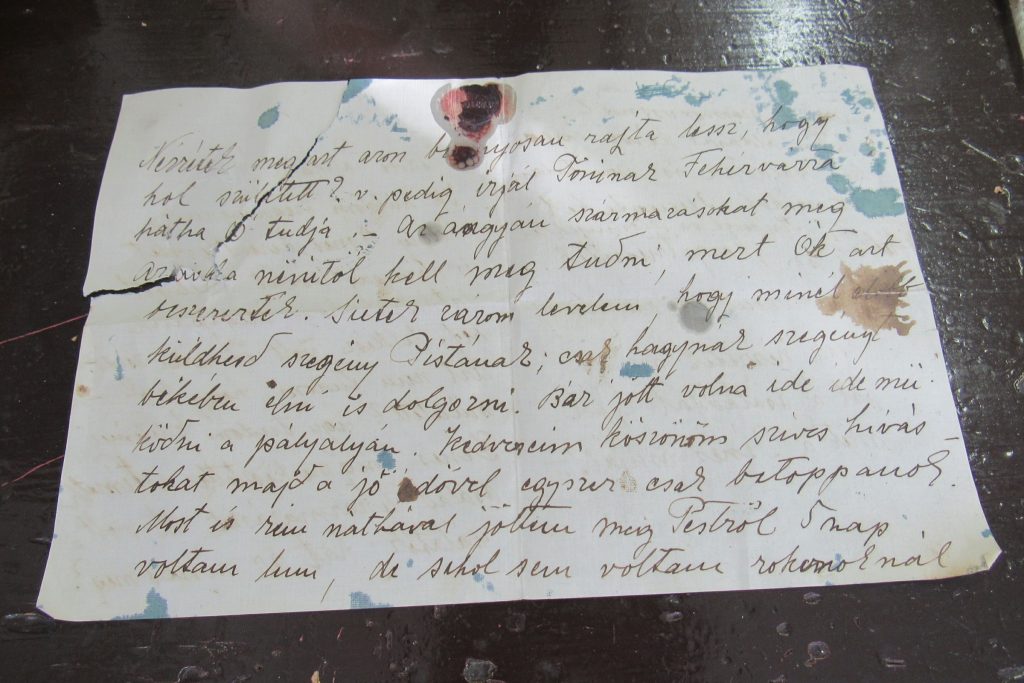 Nézzétek meg azt azon bizonyosan rajta lessz, hogy
hol született? v. pedig írjál Tóninak Fehérvárra
hátha Ő tudja :- Az anyyán származásokat meg
nénitől kell meg tudni, mert Ők azt
beszerezték. Sietek zárom levelem, hogy minél
küldhesd szegény Pistának; csak hagynák szegényt
békében élni is dolgozni. Bár jött volna ide ide mű-
ködni a pályalyán. Kedveseim köszönöm szives hívás-
tokat majd a jó idővel egyszer csak betoppanok.
Most is rém náthával jöttem meg Pestről 5 nap
voltam lenn, de sehol sem voltam rokonoknál